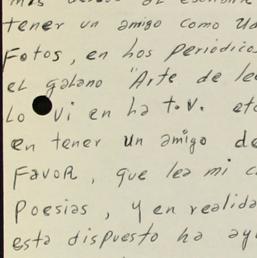 tener un amigo como Ud
Fotos, en hos periódicos
el galano "Arte de lee
Lo vi en ha t.v. etc
en tener un amigo de
Favor, que lea mi c
Poesias, y en realida
esta dispuesto ha ay